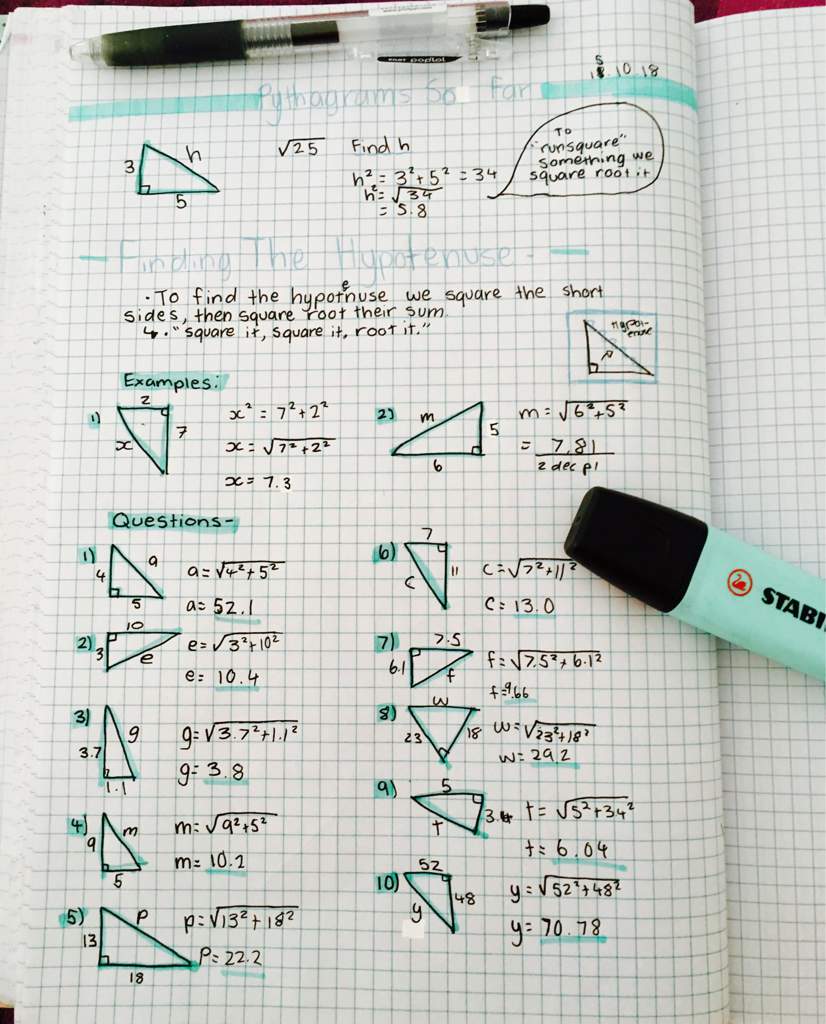 Pythagrams So Far
18.10.18
3
h
5
√25
Find h
h² = 3² + 5² = 34
h² = √34
= 5.8
To
"runsquare"
something we
square root it
- Finding The Hypotenuse. -
· To find the hypotenuse we square the short
sides, then square root their sum.
↳ . "square it, square it, root it."
Hypot-
enuse
Examples:
1)
2
7
x
x² = 7² + 2²
x = √7² + 2²
x = 7.3
2)
m
5
6
m = √6² + 5²
= 7.81
2 dec pl
Questions-
1)
4
a
5
a = √4² + 5²
a = 52.1
2)
10
3
e
e = √3² + 10²
e = 10.4
3)
3.7
g
1.1
g = √3.7² + 1.1²
g = 3.8
4)
9
m
5
m = √9² + 5²
m = 10.2
5)
13
p
18
p = √13² + 18²
P = 22.2
6)
7
11
c
c = √7² + 11²
c = 13.0
7)
7.5
6.1
f
f = √7.5² + 6.1²
f = 9.66
8)
w
23
18
w = √23² + 18²
w = 29.2
9)
5
3.4
t
t = √5² + 34²
t = 6.04
10)
52
48
y
y = √52² + 48²
y = 70.78
STABI